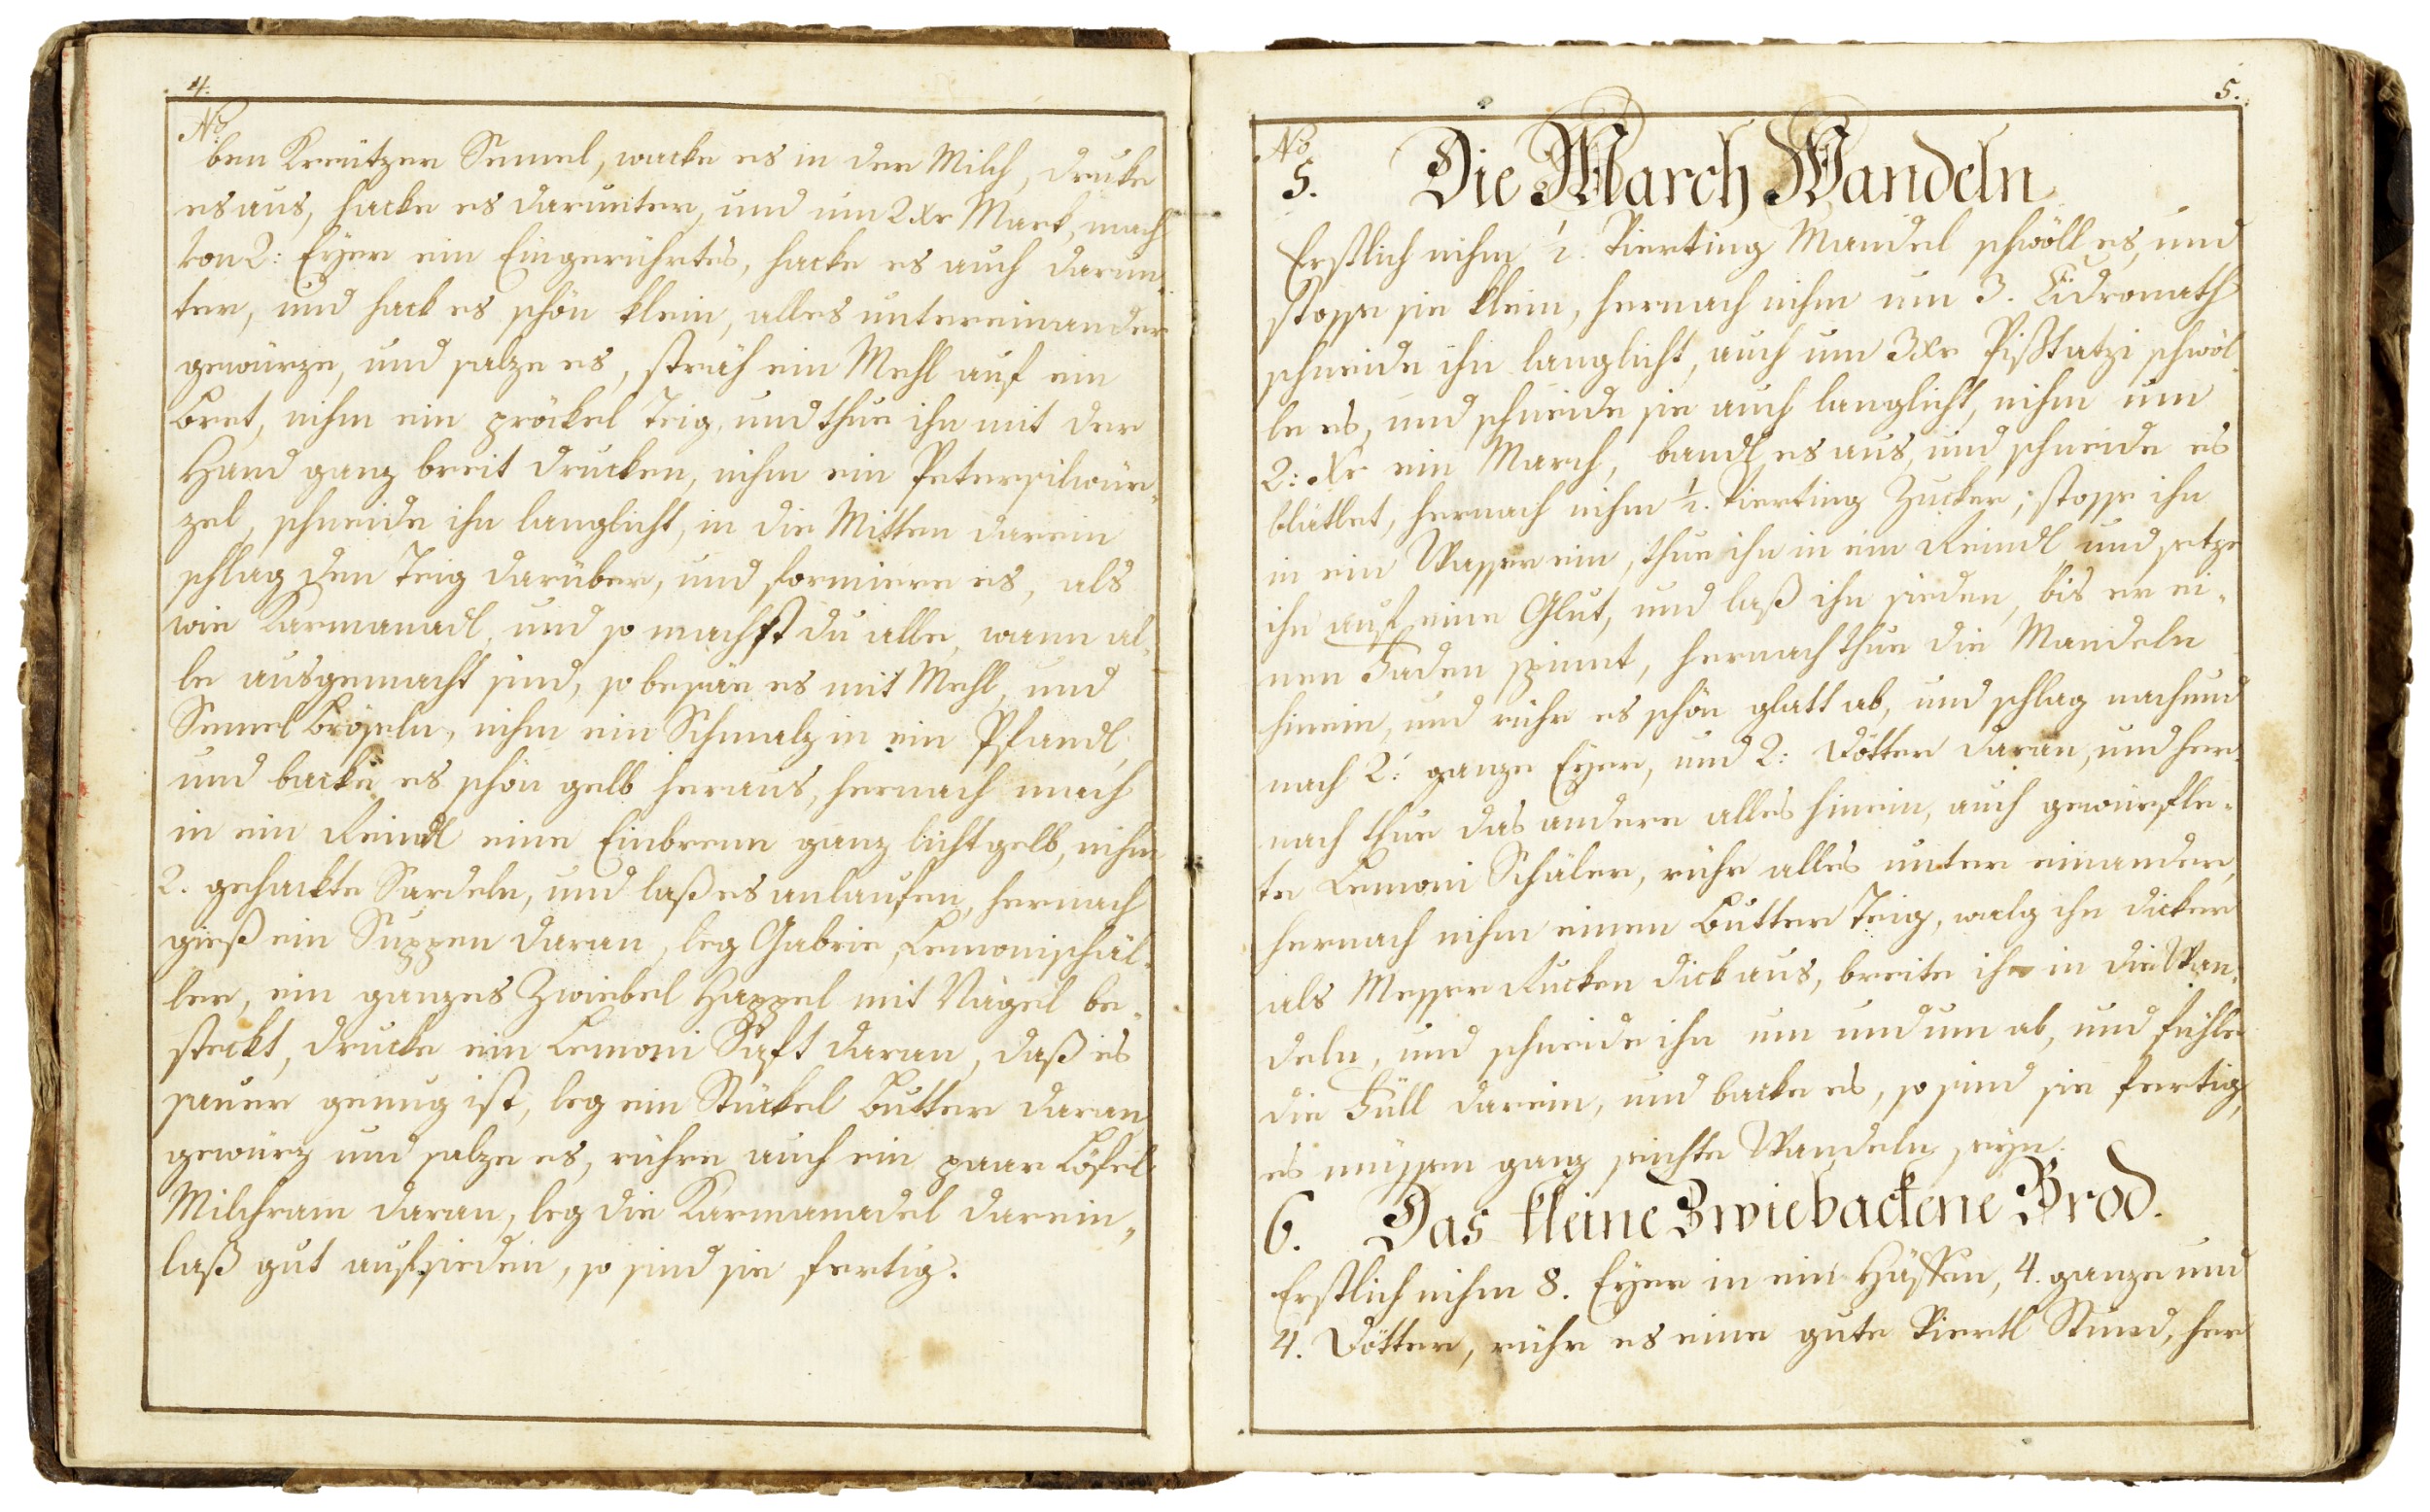 4.
No
ben Kreützer Semel, waicke es in der Milch, drucke
es aus, hacke es darunter, und um 2 Xr Mark, mach
von 2: Eyer ein Eingerührtes, hacke es auch darun-
ter, und hack es schön klein, alles untereinander
gewürze, und salze es, sträh ein Mehl auf ein
Bret, nihm ein pröckel Teig, und thue ihn mit der
Hand ganz breit drucken, nihm ein Petersilwür-
zel, schneide ihn langlicht, in die Mitten darein
schlag den Teig darüber, und formiere es, als
wie Karmanadl, und so machst du alle, wann al-
le ausgemacht sind, so besäe es mit Mehl, und
Semel Bröseln, nihm ein Schmalz in ein Pfandl,
und backe es schön gelb heraus, hernach mach
in ein Reindl eine Einbrenn ganz lichtgelb, nihm
2. gehackte Sardeln, und laß es anlaufen, hernach
gieß ein Suppen daran, leg Gabrie, Lemonischäl-
ler, ein ganzes Zwiebel Happel mit Nägeil be-
steckt, drucke ein Lemoni Saft daran, daß es
sauer genug ist, leg ein Stückel Butter daran
gewürz und salze es, rühre auch ein paar Löfel
Milchram daran, leg die Karmanadel darein,
laß gut aufsieden, so sind sie fertig.
5.
No
5. Die March Wandeln
Erstlich nihm ½. Vierting Mandel schwölle es, und
stosse sie klein, hernach nihm um 3. Zidronath
schneide ihn langlicht, auch um 3 Xr Pißtatzi schwöl-
le es, und schneide sie auch langlicht, nihm um
2: Xr ein March, bandl es aus, und schneide es
blätlet, hernach nihm ½. Vierting Zucker, stosse ihn
in ein Wasser ein, thue ihn in ein Reindl und setze
ihn auf eine Glut, und laß ihn sieden, bis er ei-
nen Faden spinnt, hernach thue die Mandeln
hinein, und rühr es schön glatt ab, und schlag nach und
nach 2: ganze Eyer, und 2: Dötter daran, und her-
nach thue das andere alles hinein, auch gewürfle-
te Lemoni Schäler, rühr alles unter einander,
hernach nihm einen Butter Teig, walg ihn dicker
als Messer Rucken dick aus, breite ihn in die Wan-
deln, und schneide ihn um und um ab, und fühle
die Füll darein, und backe es, so sind sie fertig,
es müssen ganz seichte Wandeln seyn.
6. Das kleine Zwiebackene Brod.
Erstlich nihm 8. Eyer in ein Häffen, 4. ganze und
4. Dötter, rühr es eine gute Viertl Stund, her